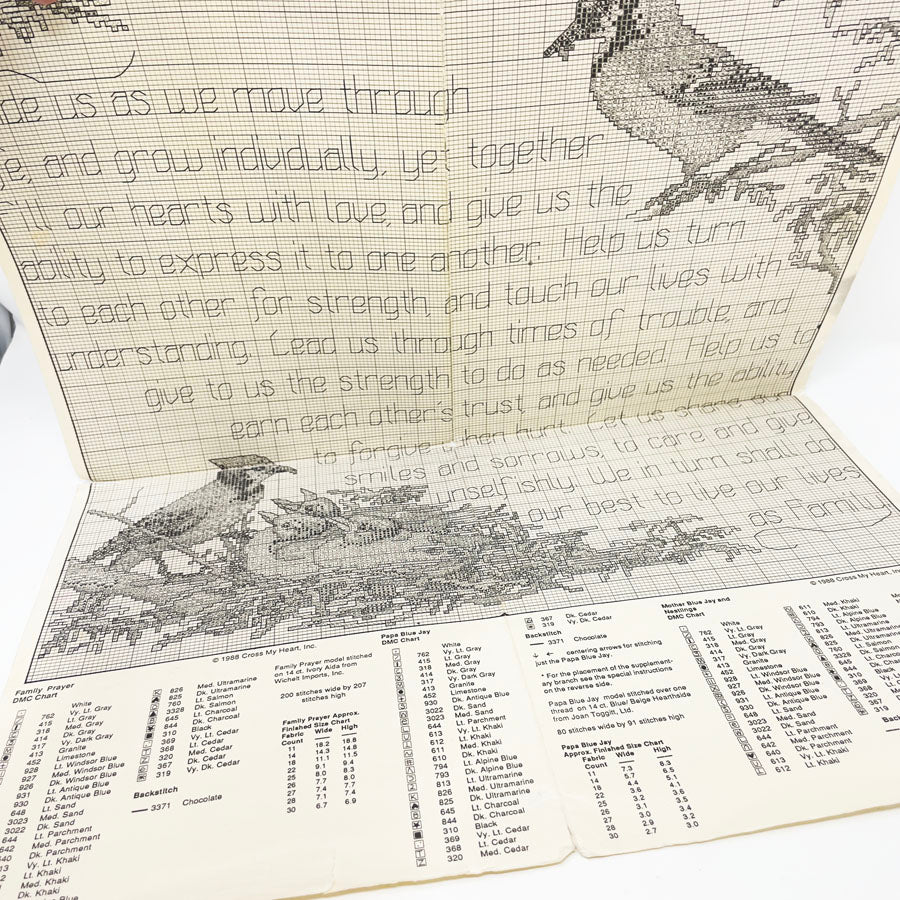 us as we move through
and grow individually, yet together
our hearts with love, and give us the
ability to express it to one another. Help us turn
to each other for strength, and touch our lives with
understanding. Lead us through times of trouble, and
give to us the strength to do as needed. Help us to
earn each other's trust, and give us the ability
to forgive when hurt. Let us share our
smiles and sorrows, to care and give
unselfishly. We in turn shall do
our best to live our lives
as Family
© 1988 Cross My Heart, Inc.
© 1988 Cross My Heart, Inc.
Family Prayer
DMC Chart
White
762 Vy. Lt. Gray
415 Lt. Gray
318 Med. Gray
414 Dk. Gray
317 Vy. Dark Gray
413 Granite
452 Limestone
928 Lt. Windsor Blue
927 Med. Windsor Blue
926 Dk. Windsor Blue
931 Lt. Antique Blue
930 Dk. Antique Blue
648 Lt. Sand
3023 Med. Sand
3022 Dk. Sand
644 Lt. Parchment
642 Med. Parchment
Dk. Parchment
Vy. Lt. Khaki
Lt. Khaki
Med. Khaki
Dk. Khaki
826 Med. Ultramarine
825 Dk. Ultramarine
760 Lt. Salmon
3328 Dk. Salmon
645 Lt. Charcoal
844 Dk. Charcoal
310 Black
369 Vy. Lt. Cedar
368 Lt. Cedar
320 Med. Cedar
367 Dk. Cedar
319 Vy. Dk. Cedar
Backstitch
3371 Chocolate
Family Prayer model stitched
on 14 ct. Ivory Aida from
Wichelt Imports, Inc.
200 stitches wide by 207
stitches high
Family Prayer Approx.
Finished Size Chart
Fabric Wide High
Count
11 18.2 18.8
14 14.3 14.8
18 11.1 11.5
22 9.1 9.4
25 8.0 8.3
26 7.7 8.0
27 7.4 7.7
28 7.1 7.4
30 6.7 6.9
Papa Blue Jay
DMC Chart
White
762 Vy. Lt. Gray
415 Lt. Gray
318 Med. Gray
414 Dk. Gray
317 Vy. Dark Gray
413 Granite
452 Limestone
930 Dk. Antique Blue
3023 Med. Sand
3022 Dk. Sand
644 Lt. Parchment
613 Vy. Lt. Khaki
612 Lt. Khaki
611 Med. Khaki
610 Dk. Khaki
794 Lt. Alpine Blue
793 Dk. Alpine Blue
813 Lt. Ultramarine
826 Med. Ultramarine
825 Dk. Ultramarine
645 Lt. Charcoal
844 Dk. Charcoal
310 Black
369 Vy. Lt. Cedar
368 Lt. Cedar
320 Med. Cedar
367 Dk. Cedar
319 Vy. Dk. Cedar
Backstitch
3371 Chocolate
centering arrows for stitching
just the Papa Blue Jay.
* For the placement of the supplement-
ary branch see the special instructions
on the reverse side.
Papa Blue Jay model stitched over one
thread on 14 ct. Bluel Beige Hearthside
from Joan Toggitt, Ltd.
80 stitches wide by 91 stitches high
Papa Blue Jay
Approx. Finished Size Chart
Fabric Wide High
Count
11 7.3 8.3
14 5.7 6.5
18 4.4 5.1
22 3.6 4.1
25 3.2 3.6
26 3.1 3.5
27 3.0 3.4
28 2.9 3.2
30 2.7 3.0
Mother Blue Jay and
Nestlings
DMC Chart
White
762 Vy. Lt. Gray
415 Lt. Gray
318 Med. Gray
414 Dk. Gray
317 Vy. Dark Gray
413 Granite
452 Limestone
928 Lt. Windsor Blue
927 Med. Windsor Blue
926 Dk. Windsor Blue
931 Lt. Antique Blue
930 Dk. Antique Blue
648 Lt. Sand
3023 Med. Sand
3022 Dk. Sand
644 Lt. Parchment
642 Med. Parchment
640 Dk. Parchment
613 Vy. Lt. Khaki
612 Lt. Khaki
611 Med. Khaki
610 Dk. Khaki
794 Lt. Alpine Blue
793 Dk. Alpine Blue
813 Lt. Ultramarine
826 Med. Ultramarine
825 Dk. Ultramarine